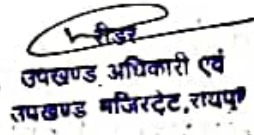 रीडर
उपखण्ड अधिकारी एवं
उपखण्ड मजिस्ट्रेट, रायपुर